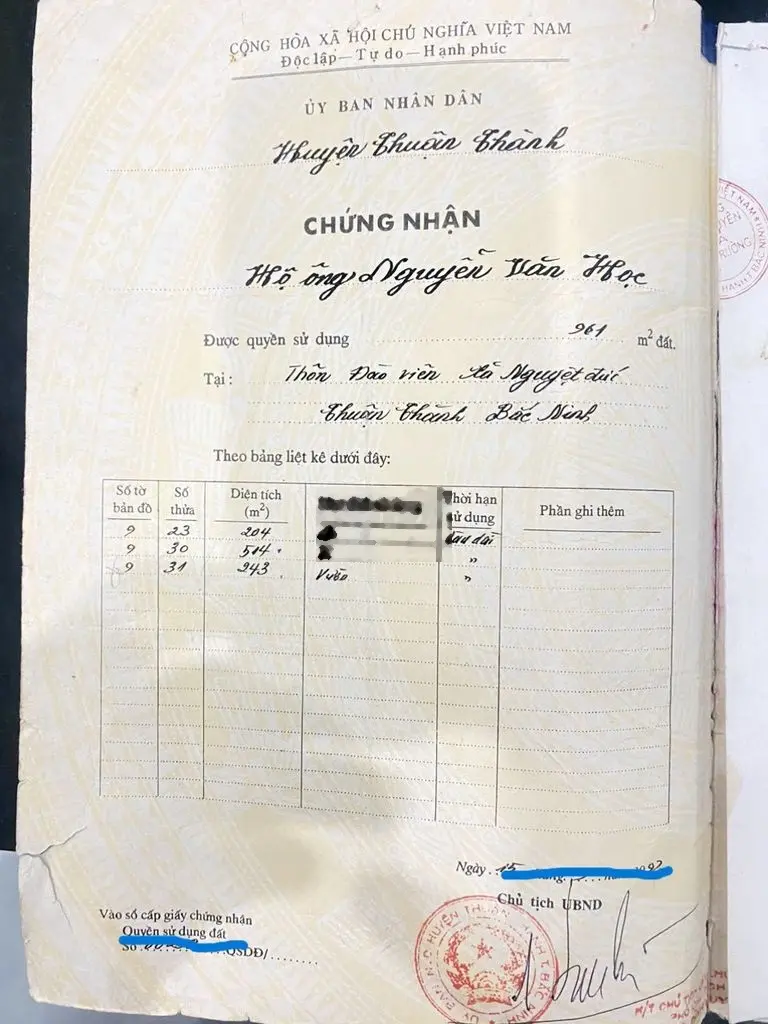 CỘNG HÒA XÃ HỘI CHỦ NGHĨA VIỆT NAM
Độc lập — Tự do — Hạnh phúc
ỦY BAN NHÂN DÂN
Huyện Thuận Thành
CHỨNG NHẬN
Hộ ông Nguyễn Văn Học
Được quyền sử dụng 961 m² đất.
Tại: Thôn Đào viên Xã Nguyệt đức
Thuận Thành Bắc Ninh
Theo bảng liệt kê dưới đây:
Số tờ bản đồ Số thửa Diện tích (m²) Thời hạn sử dụng Phần ghi thêm
9 23 204 lâu dài
9 30 514 "
9 31 243 Vườn "
Ngày 15
Chủ tịch UBND
Vào sổ cấp giấy chứng nhận
Quyền sử dụng đất
Số QSDĐ/